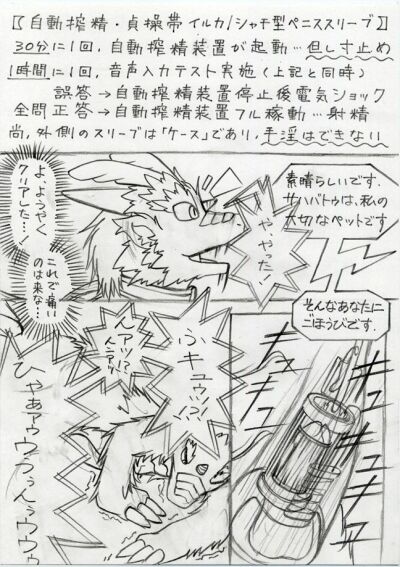 〖自動搾精・貞操帯 イルカ/シャチ型ペニススリーブ〗
30分に1回,自動搾精装置が起動…但し寸止め
1時間に1回,音声入力テスト実施(上記と同時)
誤答→自動搾精装置停止後電気ショック
全問正答→自動搾精装置フル稼動…射精
尚,外側のスリーブは「ケース」であり,手淫はできない
素晴らしいです.
サハバトゥは,私の
大切なペットです
ややった!
よ、ようやく
クリアした…!
これで痛い
のは来な…
そんなあなたに
ごほうびです.
キュ
キュ
キュ
キュ
ふキュウッ!?!
んアッ!?
ひゃあアゥウうぅんぅウウゥ